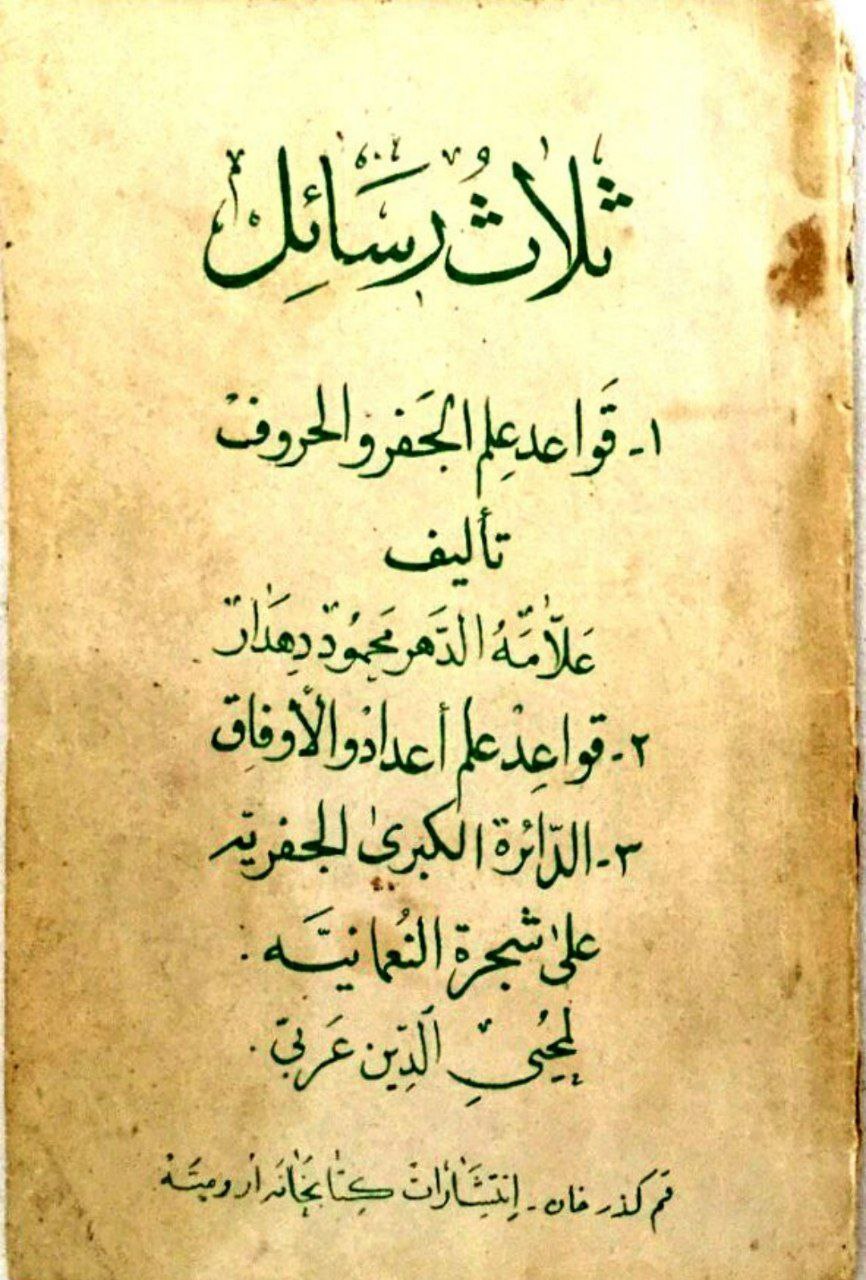 ثلاثُ رسَائِل
١- قَواعد عِلم الجَفر والحروف
تأليف
عَلّامَّهُ الدَّهر محمُود دِهدَار
٢- قواعِد علم أعداد والأوفاق
٣- الدّائرة الكبرىٰ الجفريّه
علىٰ شجرة النُعمانيَّه .
لمحُييِ الدِّين عَربيّ .
قم گذرخان - اِنتشارات کتابخانه ارومیَّه